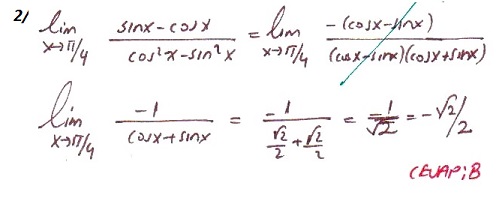 2/ lim x→π/4 (sinx-cosx)/(cos²x-sin²x) = lim x→π/4 (-(cosx-sinx))/((cosx-sinx)(cosx+sinx))
lim x→π/4 (-1)/(cosx+sinx) = (-1)/(√2/2+√2/2) = -1/√2 = -√2/2
CEVAP;B